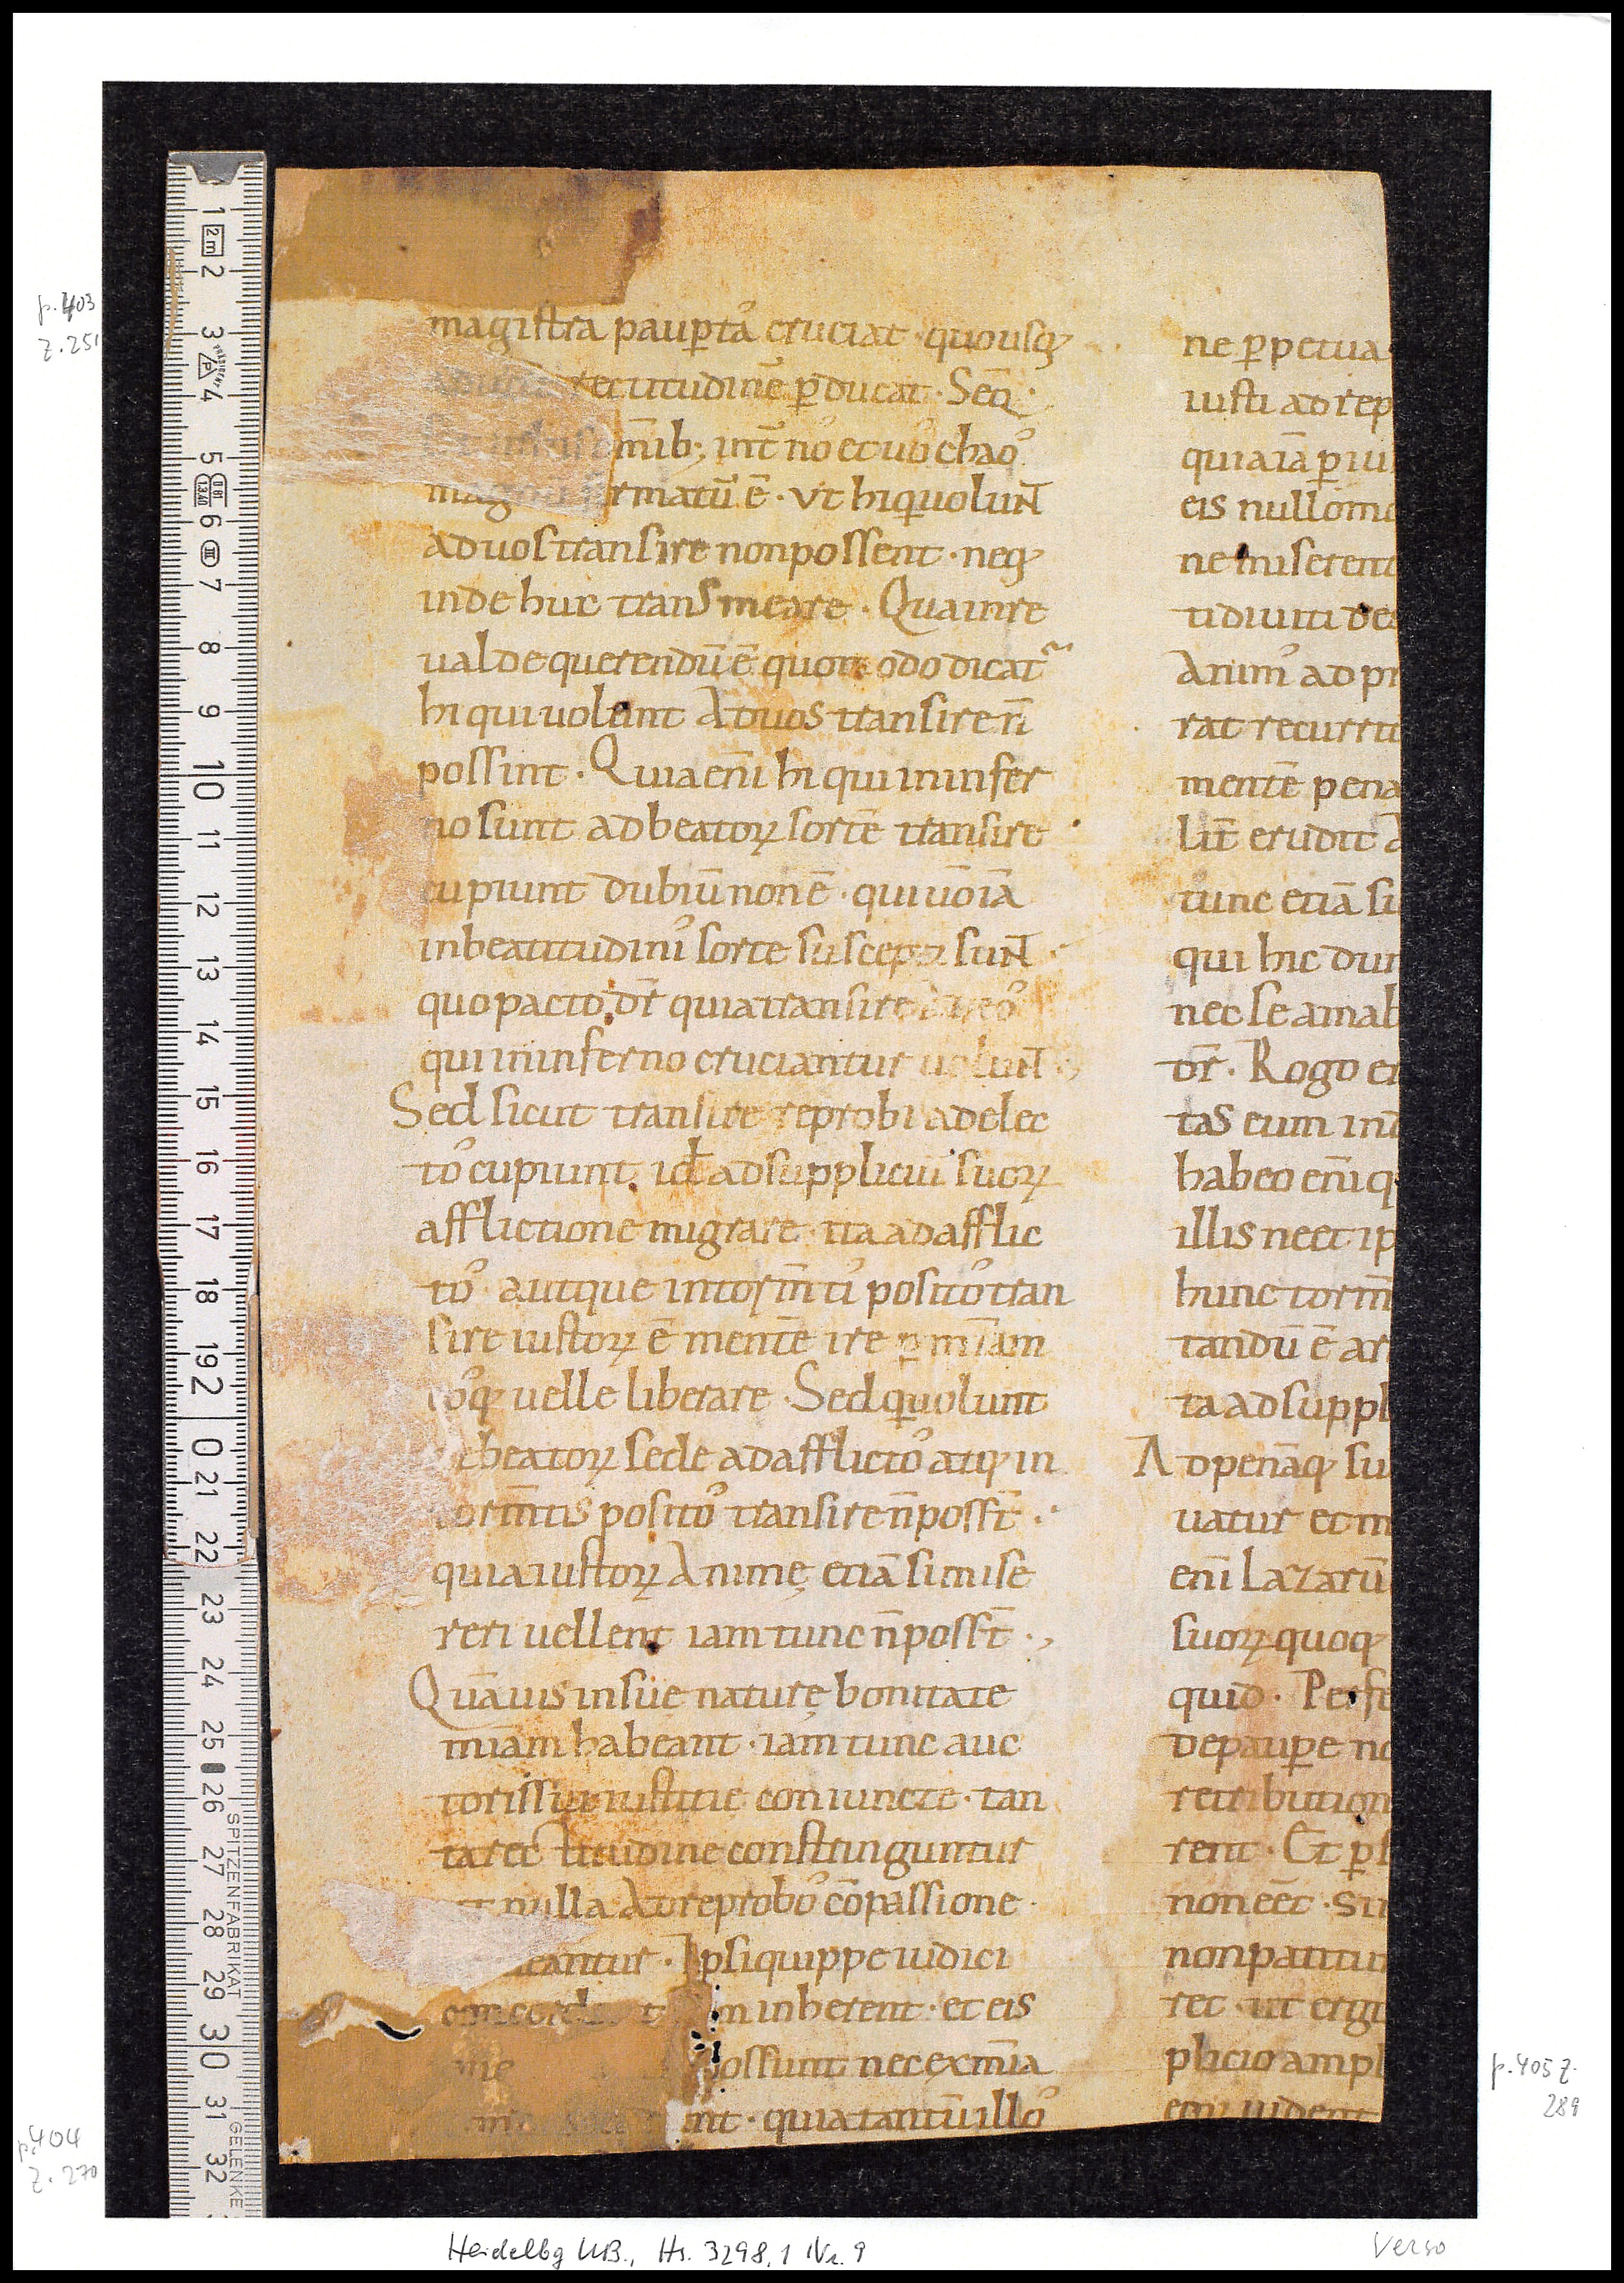 magistra paup̄tas cruciat · quousq;
rectitudinē p̄ducat · Seq̄.
om̄ib; int̄ nos et uos chaos
firmatū ē · Vt hi qui uolunt
ad uos transire non possent · neq;
inde huc transmeare · Qua in re
ualde querendū ē quomodo dicat̃
hi qui uolunt ad uos transire n̄
possint · Quia eni̅ hi qui in infer
no sunt ad beatoꝝ sortē transire
cupiunt dubiū non ē · qui u̅o iā
in beatitudinis sorte suscepti sunt
quo pacto dr̄ quia transire ad eos
qui in inferno cruciantur uolunt
Sed sicut transire reprobi ad elec
tos cupiunt id ē ad supplicioꝝ suoꝝ
afflictione migrare · ita ad afflic
tos atque in torm̄tis positos tran
sire iustoꝝ ē mentē ire p̄ mīam
eosq; uelle liberare · Sed qui uolunt
de beatoꝝ sede ad afflictos atq; in
torm̄tis positos transire n̄ posst̄
quia iustoꝝ animę etiā si mise
reri uellent iam tunc n̄ posst̄ .,
Quāuis in suę naturę bonitate
mīam habeant · iam tunc auc
toris sui iustitie coniuncte · tan
ta rectitudine constringuntur
ut nulla ad reprobos cōpassione ·
· Ipsi quippe iudici
inherent · et eis
possunt nec ex mīa
nt · quia tantū illos
ne p̄petua
iusti ad rep
quia iā p̄ iu
eis nullomo
ne miserent
ti diuiti de
animus ad pr
rat recurrit
mentē pena
lit̄ erudit a
tunc etiā su
qui hic dum
nec se amab
dr̄ · Rogo er
tas eum in d
habeo eni̅ q
illis ne et ip
hunc torm̄
tandū ē ar
ta ad suppl
Ad penāq; su
uatur et m
eni̅ Lazarū
suoꝝ quoq;
quid · Perfe
de paup̄e no
retribution
rent · Et p̄s
non eēt · su
non patitur
ret · ut ergo
plicio ampl
eoꝝ uident
p. 403
Z. 251
p. 404
Z. 270
p. 405 Z.
289
Heidelbg UB., Hs. 3298,1 Nr. 9
Verso
1 2m 2 3 4 5 6 7 8 9 10 11 12 13 14 15 16 17 18 19 20 21 22 23 24 25 26 27 28 29 30 31 32
SPITZENFABRIKAT
GELENKE